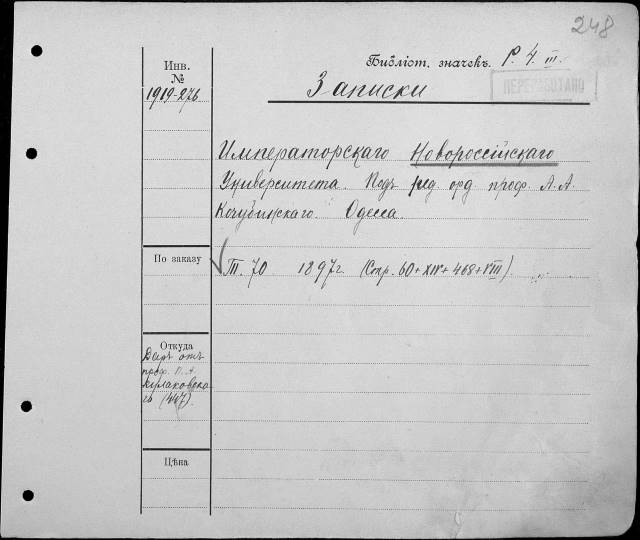 248
Библіот. значекъ. P. 4. III.
ПЕРЕРАБОТАНО
Инв.
№
1919-276
Записки
Императорскаго Новороссійскаго
Университета. Подъ ред. орд. проф. А. А.
Кочубинскаго. Одесса.
По заказу
Т. 70 1897 г. (Стр. 60 + XIV + 468 + VIII).
Откуда
Даръ отъ
проф. П. А.
(447).
Цѣна